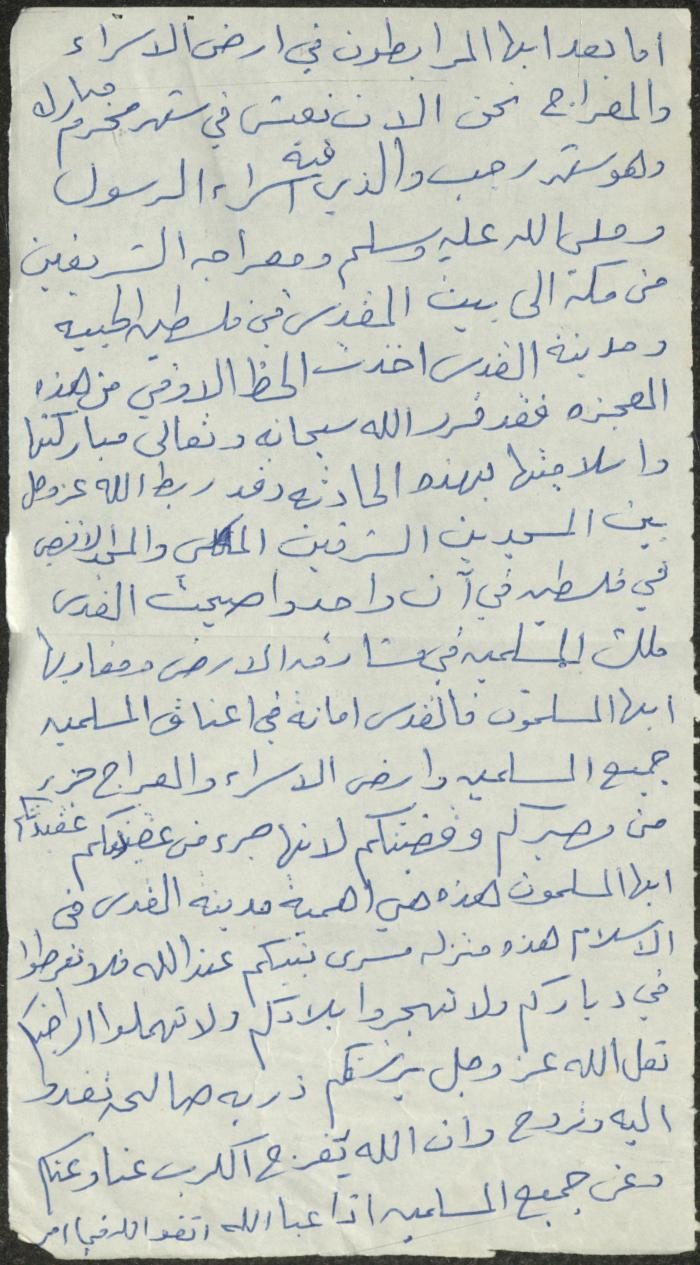 أما بعد ايها المرابطون في ارض الاسراء
والمعراج نحن الان نعيش في شهر محرم مبارك
وهو شهر رجب والذي فيه اسراء الرسول
وصلى الله عليه وسلم ومعراجه الشريفين
من مكة الى بيت المقدس في فلسطين الحبيبه
ومدينة القدس اخذت الحظ الاوفى من هذه
المعجزه فقد قرر الله سبحانه وتعالى مباركتها
واسلاميتها بهذه الحادثه وقد ربط الله عز وجل
بين المسجدين الشريفين المكي والمسجد الاقصى
في فلسطين في آن واحد واصبحت القدس
ملك المسلمين في مشارق الارض ومغاربها
ايها المسلمون فالقدس امانة في اعناق المسلمين
جميع المسلمين وارض الاسراء والمعراج جزء
من مصيركم وقضيتكم لانها جزء من عقيدتكم
ايها المسلمون هذه هي اهمية مدينه القدس في
الاسلام هذه منزله مسرى نبيكم عند الله فلا تفرطوا
في دياركم ولا تهجروا بلادكم ولا تهملوا اراضيكم
لعل الله عز وجل يرزقكم ذريه صالحه تغدوا
اليه وتروح وان الله يفرج الكرب عنا وعنكم
وعن جميع المسلمين اذا عبا الله اتقوا الله في امر